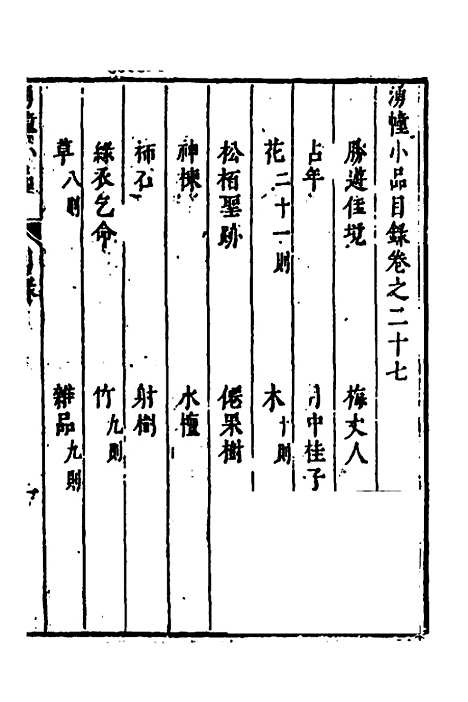 湧幢小品目錄卷之二十七
勝遊佳境 梅丈人
占年 月中桂子
花二十一則 木十則
松栢聖跡 僊果樹
神楝 水檀
柿石 射樹
綠衣乞命 竹九則
草八則 雜品九則